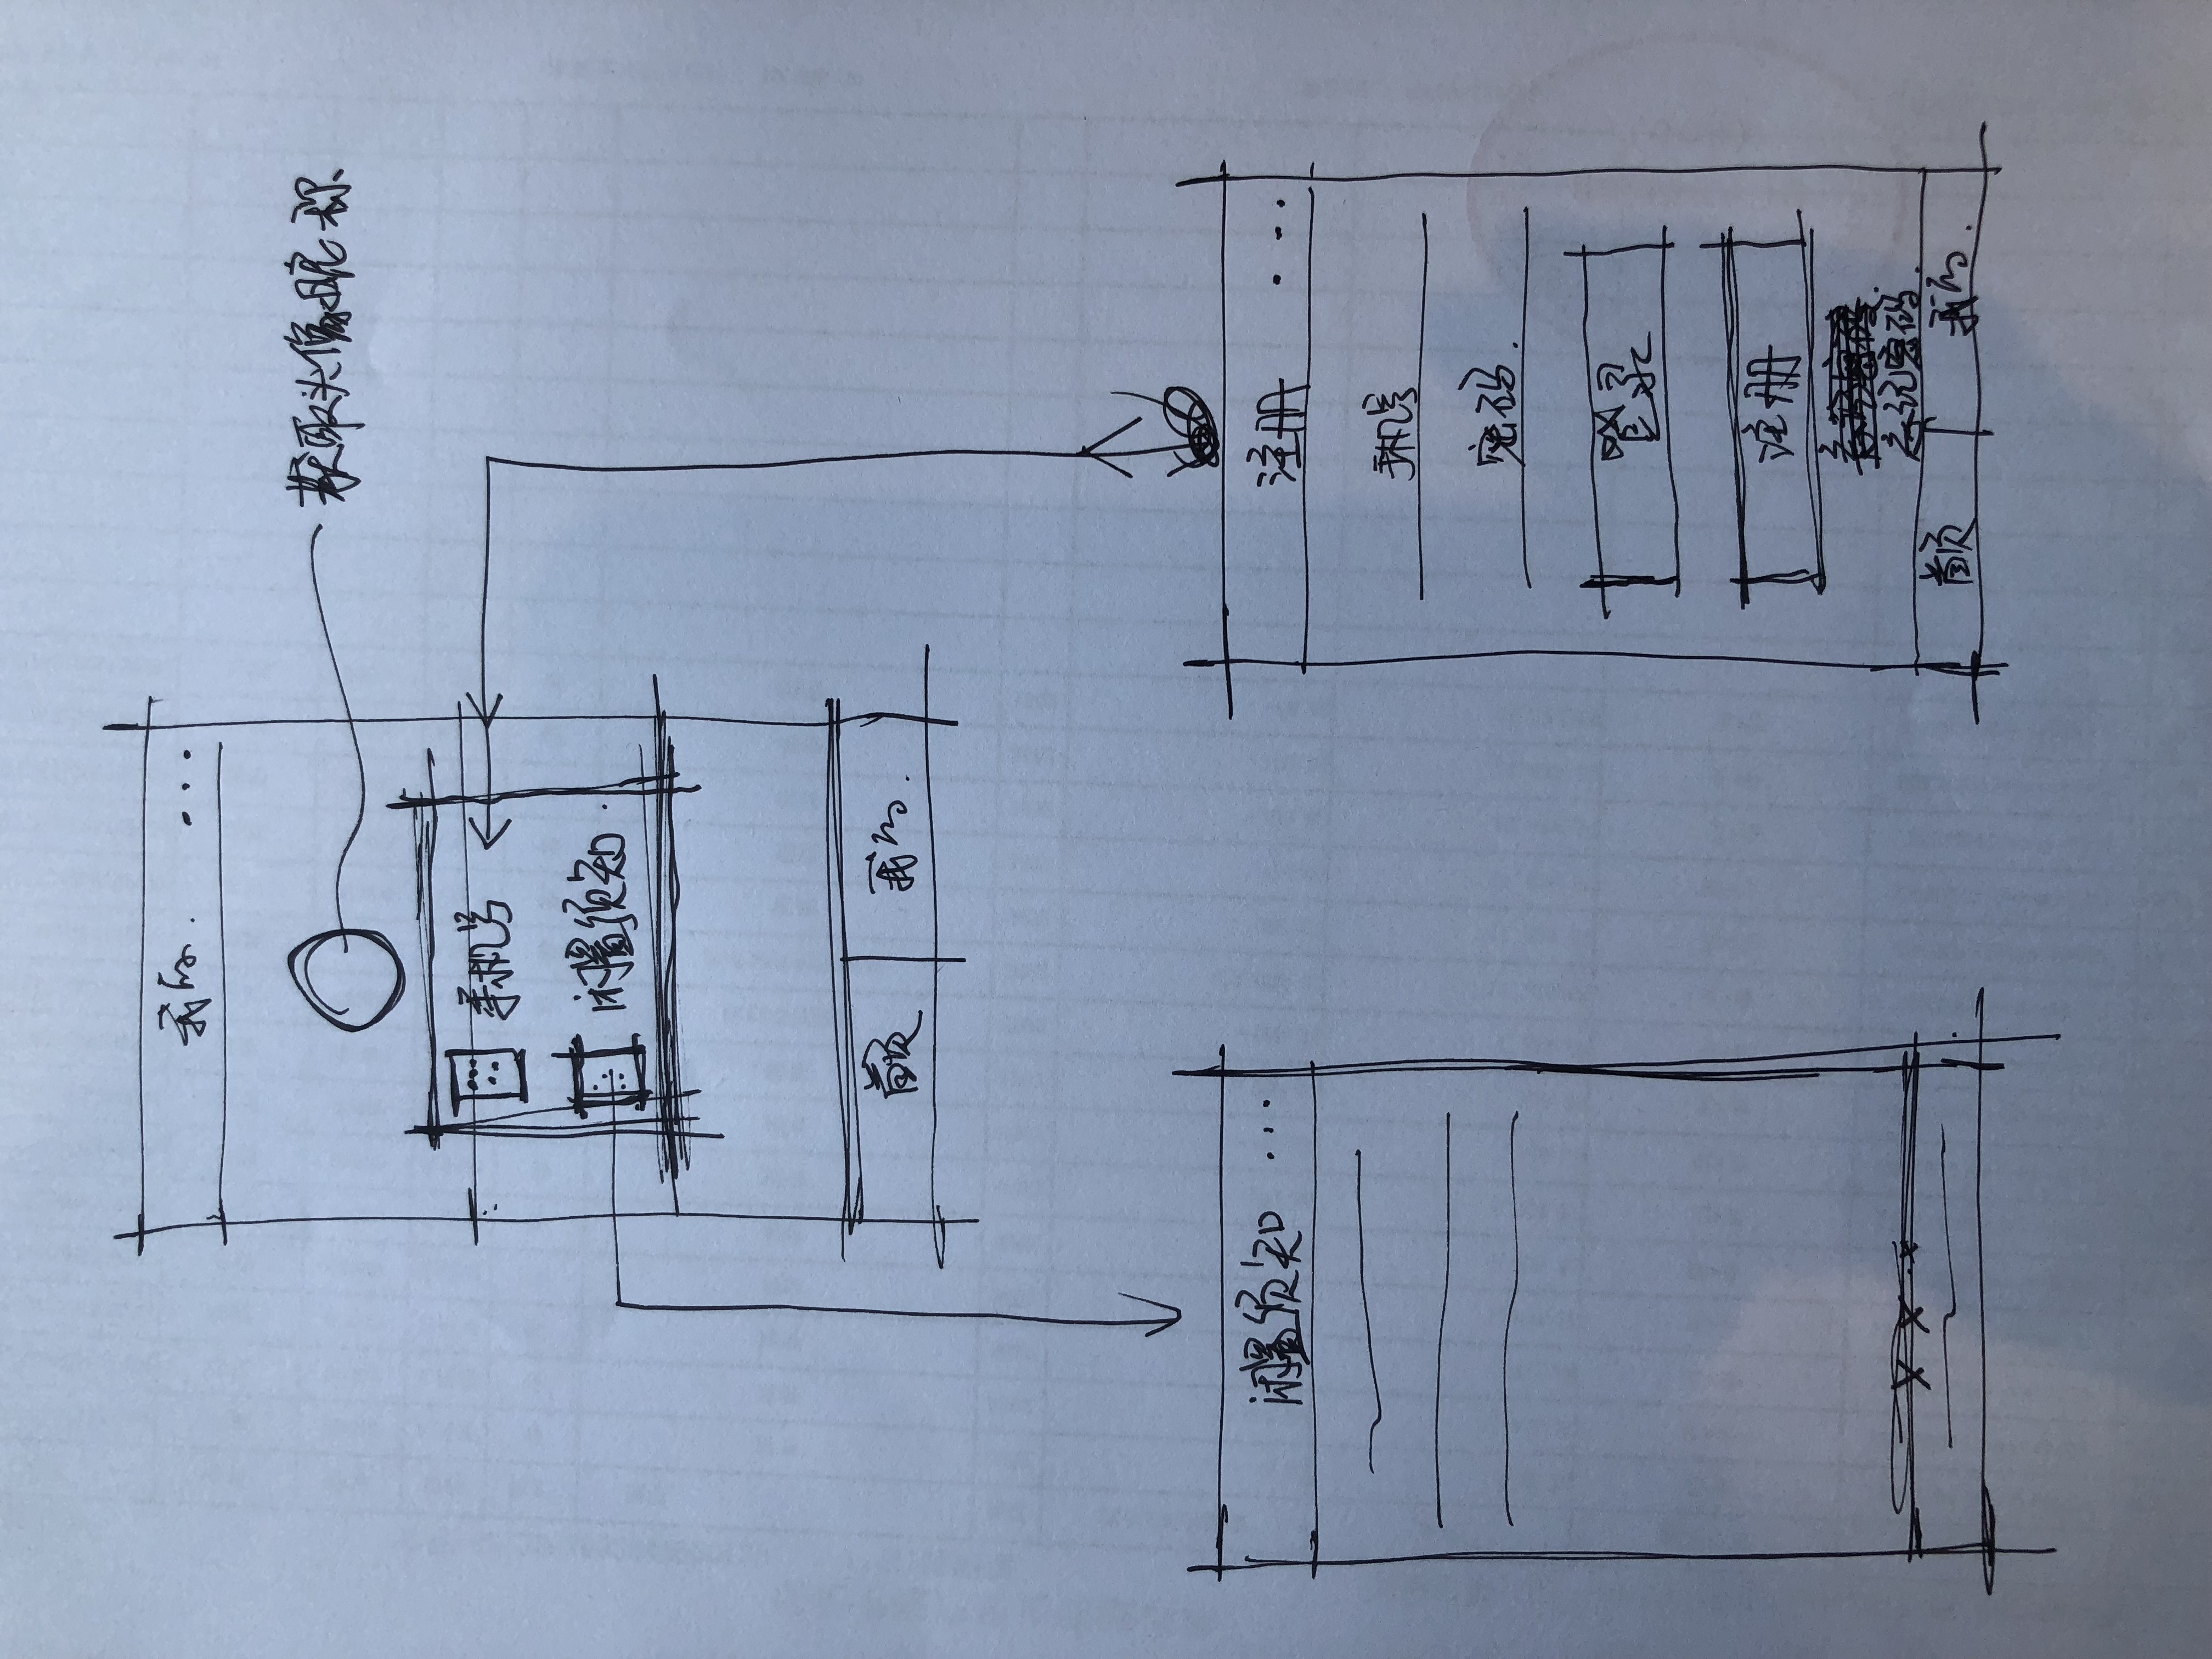 我的.
获取头像昵称
手机号
闲置须知.
首页 我的.
闲置须知
注册
手机号
密码.
登录
注册
忘记密码.
首页 我的.